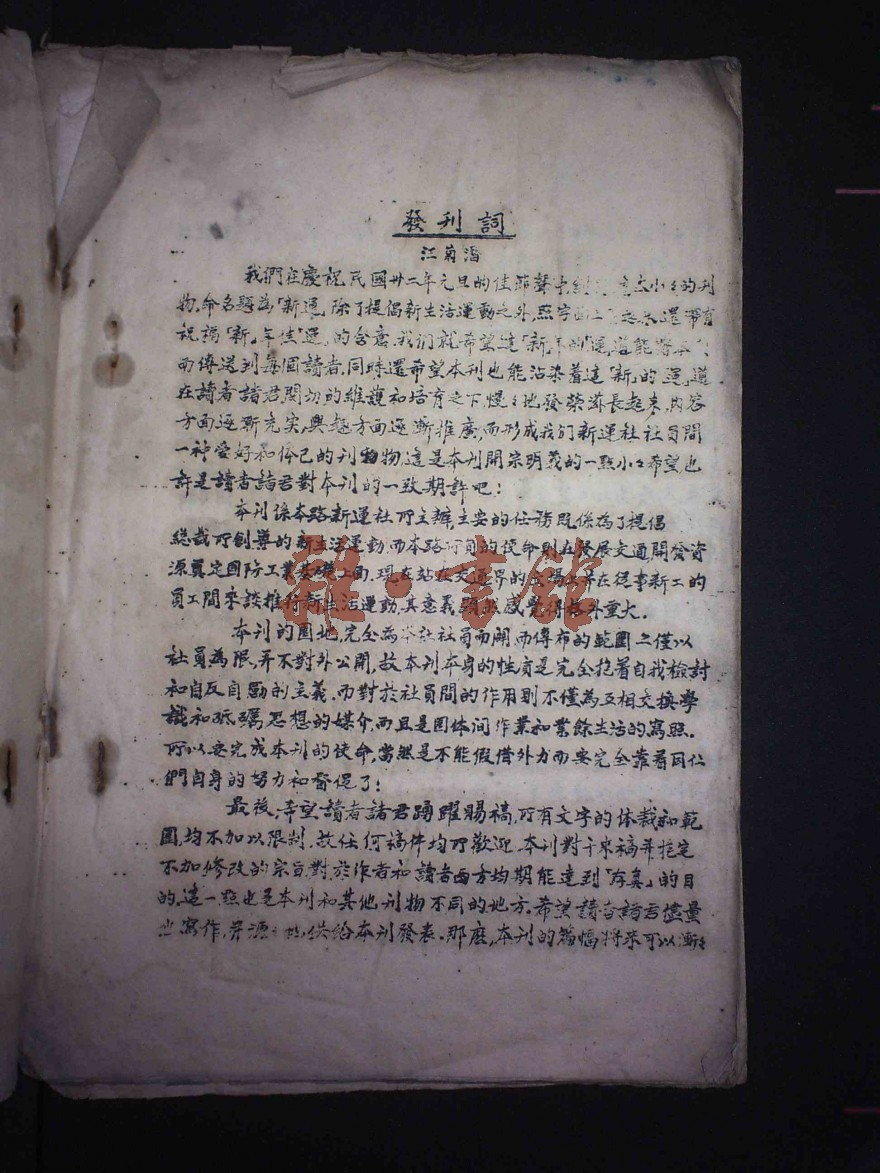 發刊詞
江菊潘
我們在慶祝民國卅二年元旦的佳節聲中，小〻的刊
物，命名題為「新運」除了提倡新生活運動之外，照字面上還帶有
祝福「新」年佳「運」的含意，我们就希望這「新」年的「運」道能將本
而傳送到每個讀者，同時還希望本刊也能沾染着這「新」的「運」道
在讀者諸君関切的維護和培育之下，慢〻地發榮滋長起來，內容
方面逐漸充实，興趣方面逐漸推廣，而形成我们新運社社員間
一种爱好和体己的刊物，這是本刊開宗明義的一點小〻希望，也
許是讀者諸君對本刊的一致期許吧！
本刊係本路新運社所主辦，主要的任務既係為了提倡
總裁所創導的新生活運動，而本路所負的使命則在發展交通，開發資
源奠定國防工業基礎上面，現在站在交通界的立場並在從事新工的
員工間來談推行新生活運動，其意義顕然感覺得格外重大。
本刊的園地，完全為本社社員而開，而傳布的範圍亦僅以
社員為限，并不對外公開，故本刊本身的性質是完全抱着自我檢討
和自反自勵的主義，而對於社員間的作用則不僅為互相交換學
識和砥礪思想的媒介，而且是团体间作業和業餘生活的寫照。
所以要完成本刊的使命，當然是不能假借外力而要完全靠着同仁
們自身的努力和督促了！
最後，希望讀者諸君踴躍賜稿，所有文字的体裁和範
圍，均不加以限制，故任何稿件均所歡迎，本刊對于來稿并抱定
不加修改的宗旨，對於作者和讀者两方均期能達到「存真」的目
的，這一點也是本刊和其他刊物不同的地方。希望讀者諸君儘量
寫作，并源〻地供給本刊發表。那麽，本刊的篇幅將來可以漸〻
雜·書館